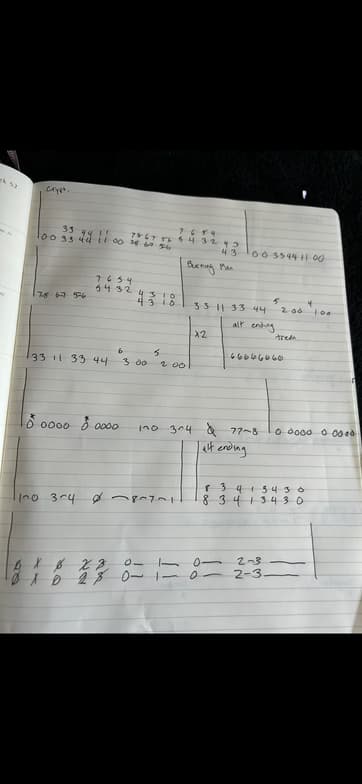 Crypt.
33 44 11 78 67 56 7 6 5 4
00 33 44 11 00 78 67 56 5 4 3 2 4 3
4 3 00 3344 11 00
Burning Man
7 6 5 4
5 4 3 2 4 3 1 0
78 67 56 4 3 1 0 33 11 33 44 5 2 00 4 1 00
alt ending
x2 trem
6 5
33 11 33 44 3 00 2 00 66666660
0 0000 0 0000 1~0 3~4 77~8 0 0000 0 0000
alt ending
8 3 4 1 3 4 3 0
1~0 3~4 Ø ~8~7~1 8 3 4 1 3 4 3 0
0 X 0 2 3 0— 1— 0— 2-3 —
0 X 0 2 3 0— 1— 0— 2-3 —